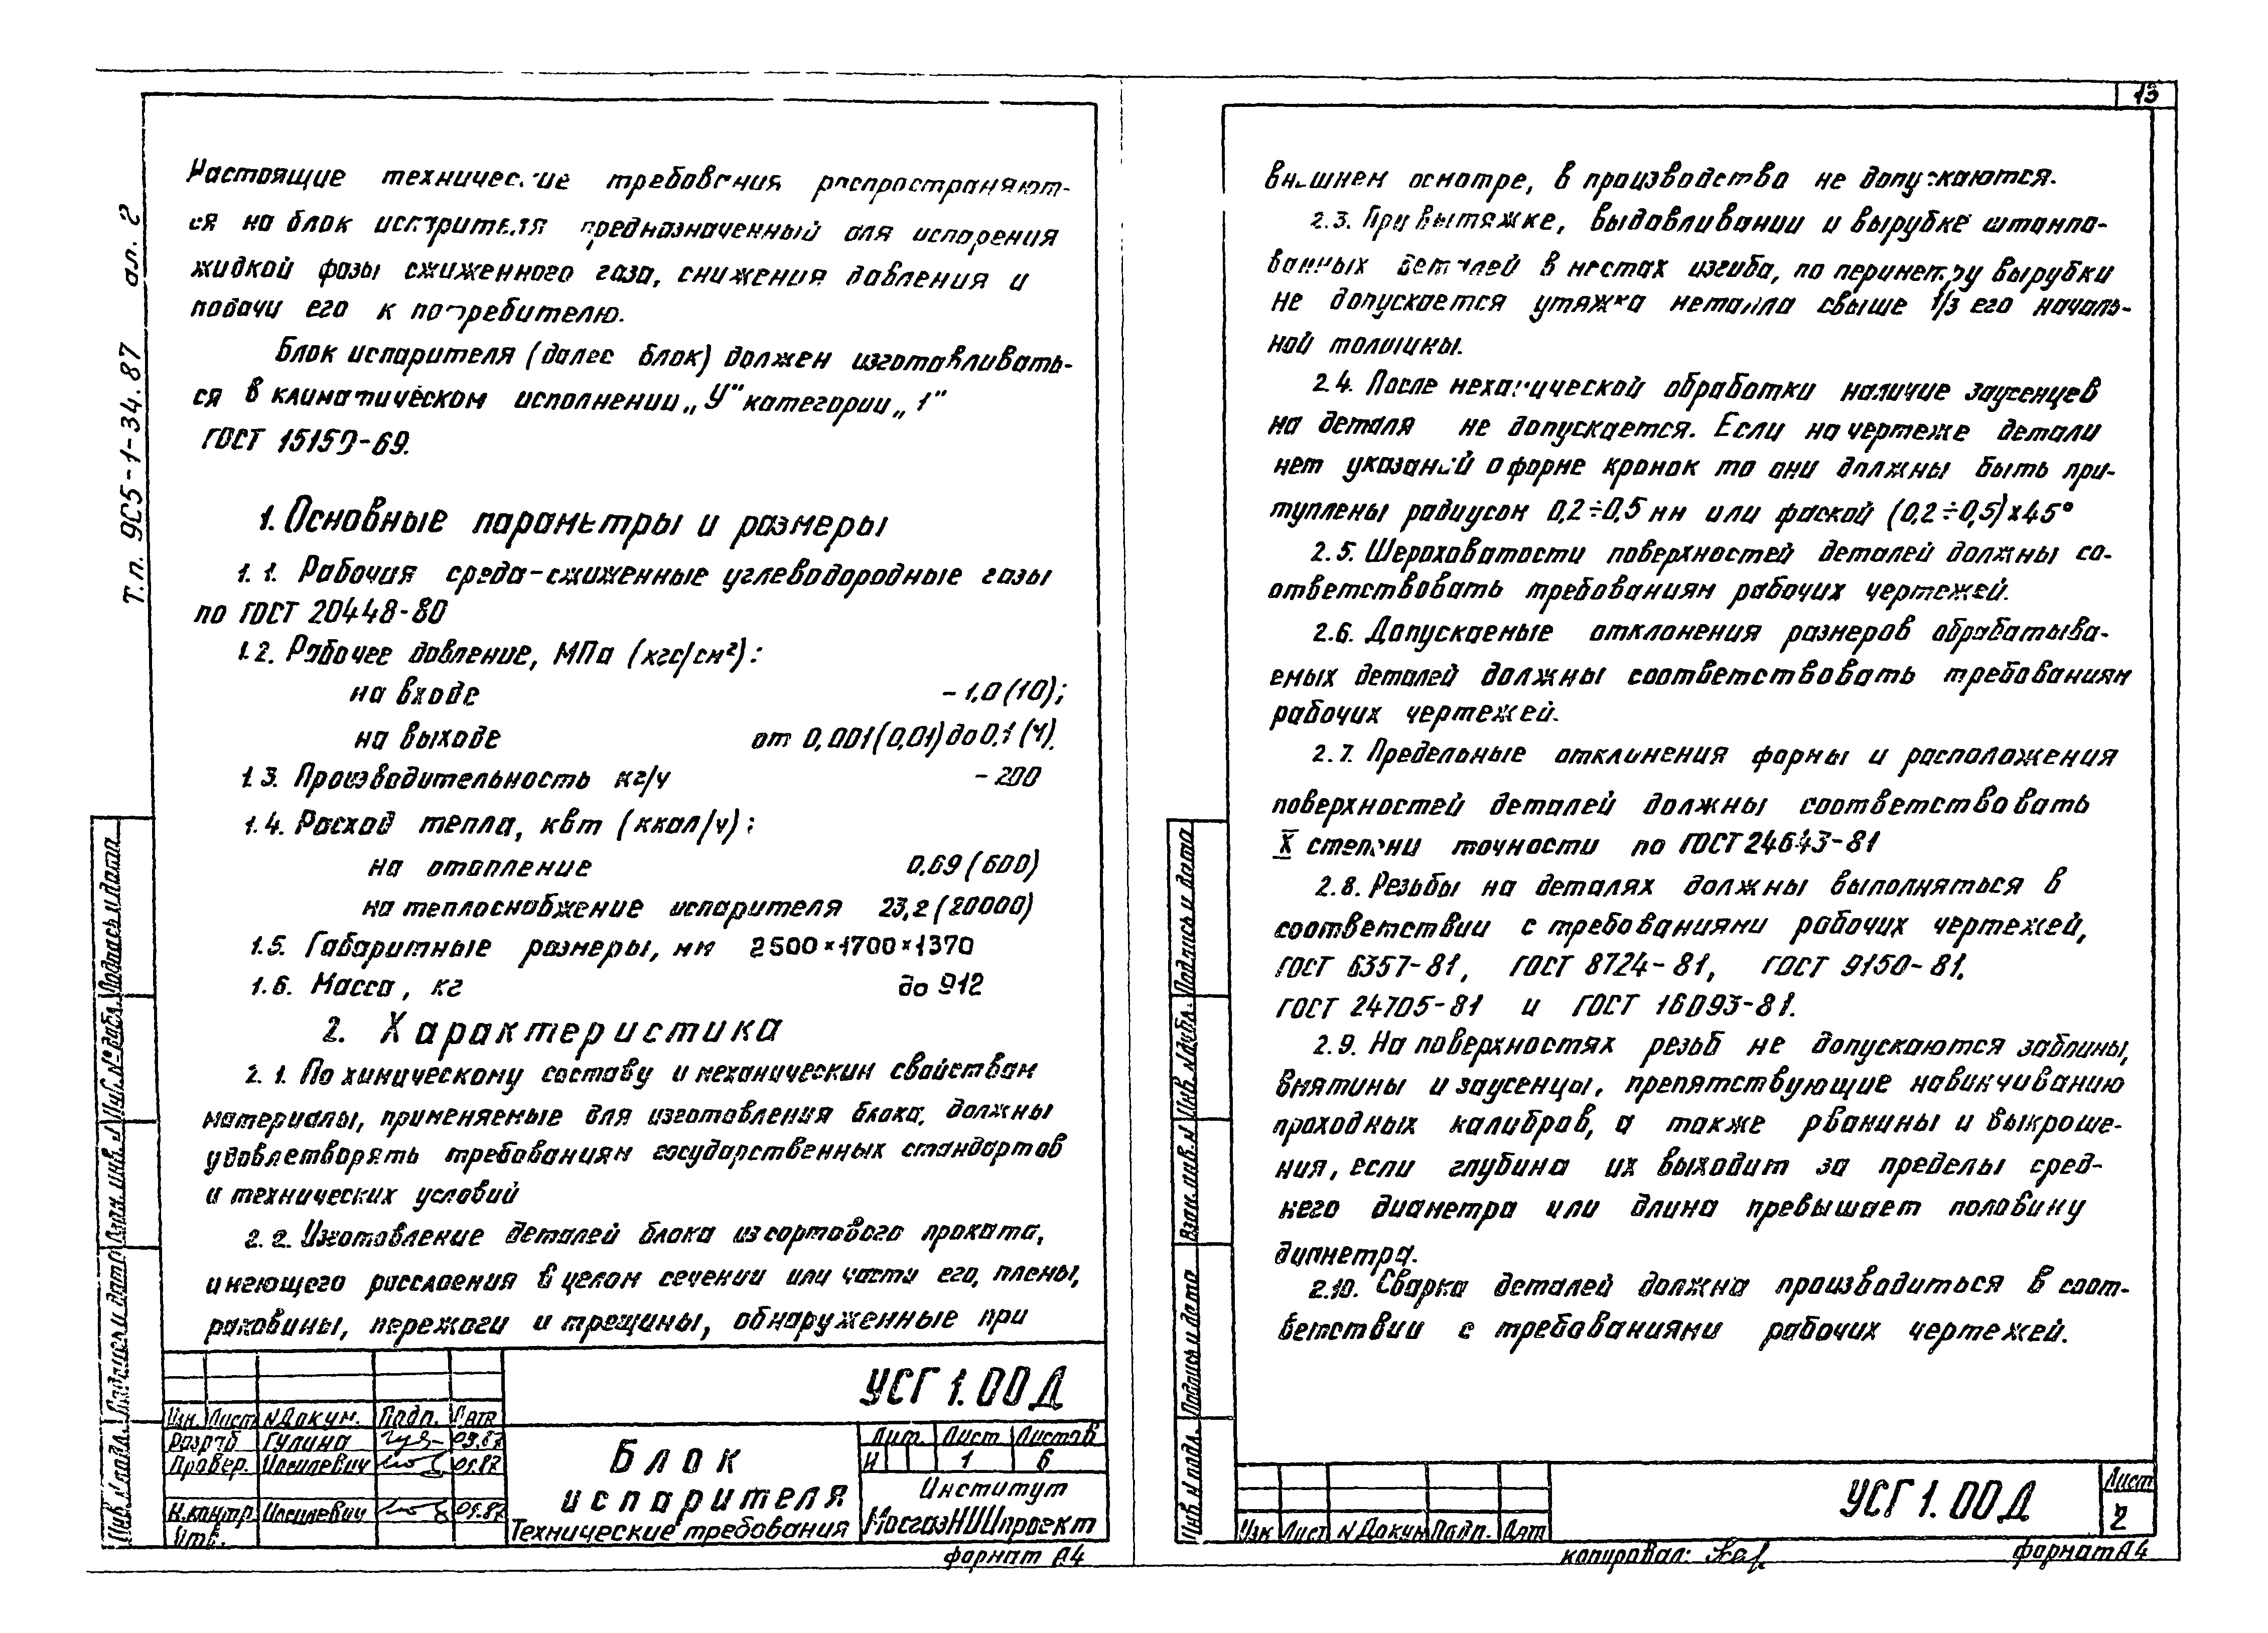 13
Т.п. 9С5-1-34.87 ал. 2
Настоящие технические требования распространяют-
ся на блок испарителя предназначенный для испарения
жидкой фазы сжиженного газа, снижения давления и
подачи его к потребителю.
Блок испарителя (далее блок) должен изготавливать-
ся в климатическом исполнении „У" категории „1"
ГОСТ 15150-69.
1. Основные параметры и размеры
1.1. Рабочия среда-сжиженные углеводородные газы
по ГОСТ 20448-80
1.2. Рабочее давление, МПа (кгс/см²):
на входе - 1,0 (10);
на выходе от 0,001 (0,01) до 0,1 (1).
1.3. Производительность кг/ч - 200
1.4. Расход тепла, квт (ккал/ч):
на отопление 0,69 (600)
на теплоснабжение испарителя 23,2 (20000)
1.5. Габаритные размеры, мм 2500×1700×1370
1.6. Масса, кг до 912
2. Характеристика
2.1. По химическому составу и механическим свойствам
материалы, применяемые для изготовления блока, должны
удовлетворять требованиям государственных стандартов
и технических условий
2.2. Изготовление деталей блока из сортового проката,
имеющего расслоения в целом сечении или части его, плены,
раковины, пережоги и трещины, обнаруженные при
УСГ 1.00 Д
Изм. Лист N Докум. Подп. Дата
Разраб Гулина 09.87
Провер. Иосилевич 09.87
Н.контр Иосилевич 09.87
Утв.
Блок
испарителя
Технические требования
Лит. Лист Листов
И 1 6
Институт
МосгазНИИпроект
формат А4
Инв. N подл. Подпись и дата Взам. инв. N Инв. N дубл. Подпись и дата
внешнем осмотре, в производство не допускаются.
2.3. При вытяжке, выдавливании и вырубке штампо-
ванных деталей в местах изгиба, по периметру вырубки
не допускается утяжка металла свыше 1/3 его началь-
ной толщины.
2.4. После механической обработки наличие заусенцев
на деталя не допускается. Если на чертеже детали
нет указаний о форме кромок то они должны быть при-
туплены радиусом 0,2÷0,5 мм или фаской (0,2÷0,5)×45°
2.5. Шероховатости поверхностей деталей должны со-
ответствовать требованиям рабочих чертежей.
2.6. Допускаемые отклонения размеров обрабатыва-
емых деталей должны соответствовать требованиям
рабочих чертежей.
2.7. Предельные отклинения формы и расположения
поверхностей деталей должны соответствовать
X степени точности по ГОСТ 24643-81
2.8. Резьбы на деталях должны выполняться в
соответствии с требованиями рабочих чертежей,
ГОСТ 6357-81, ГОСТ 8724-81, ГОСТ 9150-81,
ГОСТ 24705-81 и ГОСТ 16093-81.
2.9. На поверхностях резьб не допускаются забоины,
вмятины и заусенцы, препятствующие навинчиванию
проходных калибров, а также рванины и выкроше-
ния, если глубина их выходит за пределы сред-
него диаметра или длина превышает половину
диаметра.
2.10. Сварка деталей должна производиться в соот-
ветствии с требованиями рабочих чертежей.
Инв. N подл. Подпись и дата Взам. инв. N Инв. N дубл. Подпись и дата
Изм Лист N Докум Подп. Дат
УСГ 1.00 Д
Лист
2
копировал:
формат А4